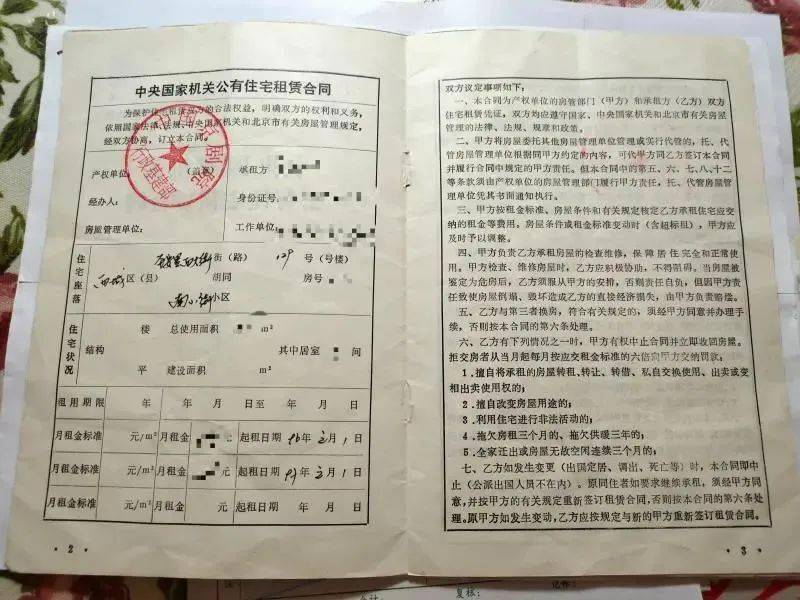 中央国家机关公有住宅租赁合同
为保护住宅租赁双方的合法权益，明确双方的权利和义务，
依照国家法律、法规、中央国家机关和北京市有关房屋管理规定，
经双方协商，订立本合同。
产权单位： （盖章） 承租方
经办人： 身份证号：
房屋管理单位： 工作单位：
住宅座落
西城 区（县） 街（路） 129 号（号楼）
胡同 房号
南小街 小区
住宅状况
楼 总使用面积 m²
结构 其中居室 间
平 建设面积 m²
租用期限 年 年 月 日至 年 月 日
月租金标准 元/m² 月租金 元 起租日期 年 月 1 日
月租金标准 元/m² 月租金 元 起租日期 年 月 1 日
月租金标准 元/m² 月租金 元 起租日期 年 月 日
· 2 ·
双方议定事项如下：
一、本合同为产权单位的房管部门（甲方）和承租方（乙方）双方
住宅租赁凭证。双方均应遵守国家、中央国家机关和北京市有关房屋
管理的法律、法规、规章和政策。
二、甲方将房屋委托其他房屋管理单位管理或实行代管的，托、代
管房屋管理单位根据同甲方约定的内容，可代甲方同乙方签订本合同
并履行合同中规定的甲方责任。但本合同中的第五、六、七、八、十二
等条款须由产权单位的房屋管理部门履行甲方责任，托、代管房屋管
理单位凭其书面通知执行。
三、甲方按租金标准、房屋条件和有关规定核定乙方承租住宅应交
纳的租金等费用。房屋条件或租金标准变动时（含超标租），甲方应
及时予以调整。
四、甲方负责乙方承租房屋的检查维修，保障居住完全和正常使
用。甲方检查、维修房屋时，乙方应积极协助，不得阻碍。当房屋被
鉴定为危房后，乙方须服从甲方的安排，否则责任自负，但因甲方责
任致使房屋倒塌、毁坏造成乙方的直接经济损失，由甲方负责赔偿。
五、乙方与第三者换房，符合有关规定的，须经甲方同意并办理手
续，否则按本合同的第六条处理。
六、乙方有下列情况之一时，甲方有权中止合同并立即收回房屋。
拒交房者从当月起每月按应交租金标准的六倍向甲方交纳罚款：
1．擅自将承租的房屋转租、转让、转借、私自交换使用、出卖或变
相出卖使用权的；
2．擅自改变房屋用途的；
3．利用住宅进行非法活动的；
4．拖欠房租三个月的、拖欠供暖三年的；
5．全家迁出或房屋无故空闲连续三个月的；
七、乙方如发生变更（出国定居、调出、死亡等）时，本合同即中
止（公派出国人员不在内）。原同住者如要求继续承租，须经甲方同
意，并按甲方的有关规定重新签订租赁合同，否则按本合同的第六条处
理。原甲方如发生变动，乙方应按规定与新的甲方重新签订租赁合同。
· 3 ·
复核：